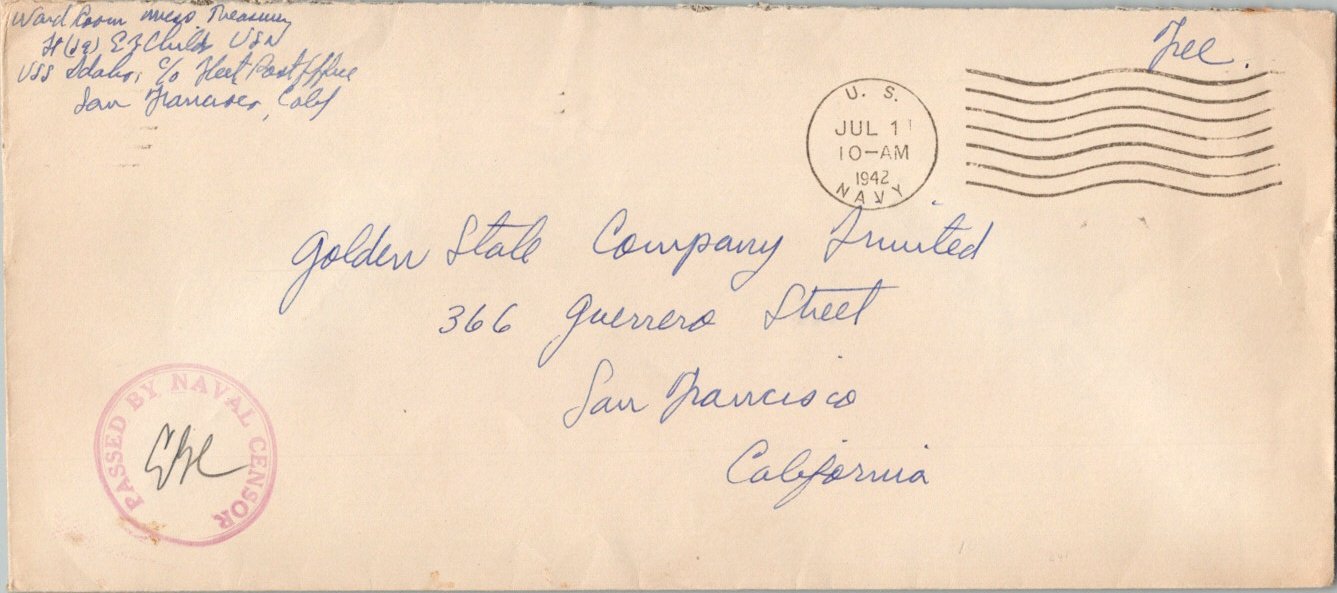 Ward Room mess Treasury
Lt (jg) E Childs USN
USS Idaho, c/o Fleet Post Office
San Francisco, Calif
Free.
U. S.
JUL 1
10-AM
1942
NAVY
Golden State Company Limited
366 Guerrero Street
San Francisco
California
PASSED BY NAVAL CENSOR